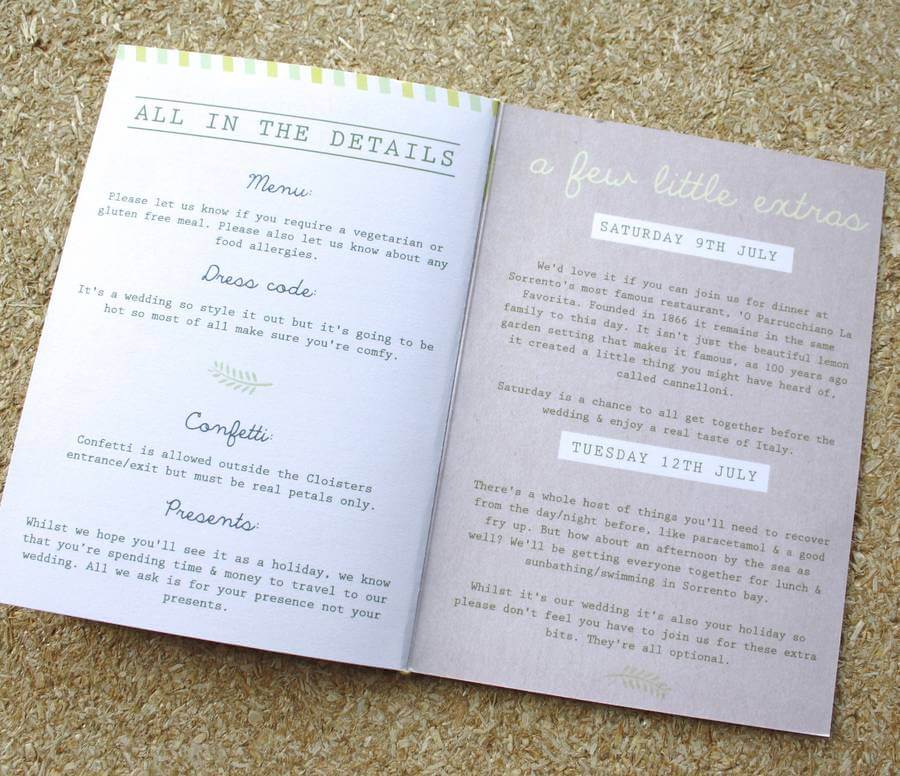 ALL IN THE DETAILS
Menu:
Please let us know if you require a vegetarian or
gluten free meal. Please also let us know about any
food allergies.
Dress code:
It's a wedding so style it out but it's going to be
hot so most of all make sure you're comfy.
Confetti:
Confetti is allowed outside the Cloisters
entrance/exit but must be real petals only.
Presents:
Whilst we hope you'll see it as a holiday, we know
that you're spending time & money to travel to our
wedding. All we ask is for your presence not your
presents.
a few little extras
SATURDAY 9TH JULY
We'd love it if you can join us for dinner at
Sorrento's most famous restaurant, 'O Parrucchiano La
Favorita. Founded in 1866 it remains in the same
family to this day. It isn't just the beautiful lemon
garden setting that makes it famous, as 100 years ago
it created a little thing you might have heard of,
called cannelloni.
Saturday is a chance to all get together before the
wedding & enjoy a real taste of Italy.
TUESDAY 12TH JULY
There's a whole host of things you'll need to recover
from the day/night before, like paracetamol & a good
fry up. But how about an afternoon by the sea as
well? We'll be getting everyone together for lunch &
sunbathing/swimming in Sorrento bay.
Whilst it's our wedding it's also your holiday so
please don't feel you have to join us for these extra
bits. They're all optional.